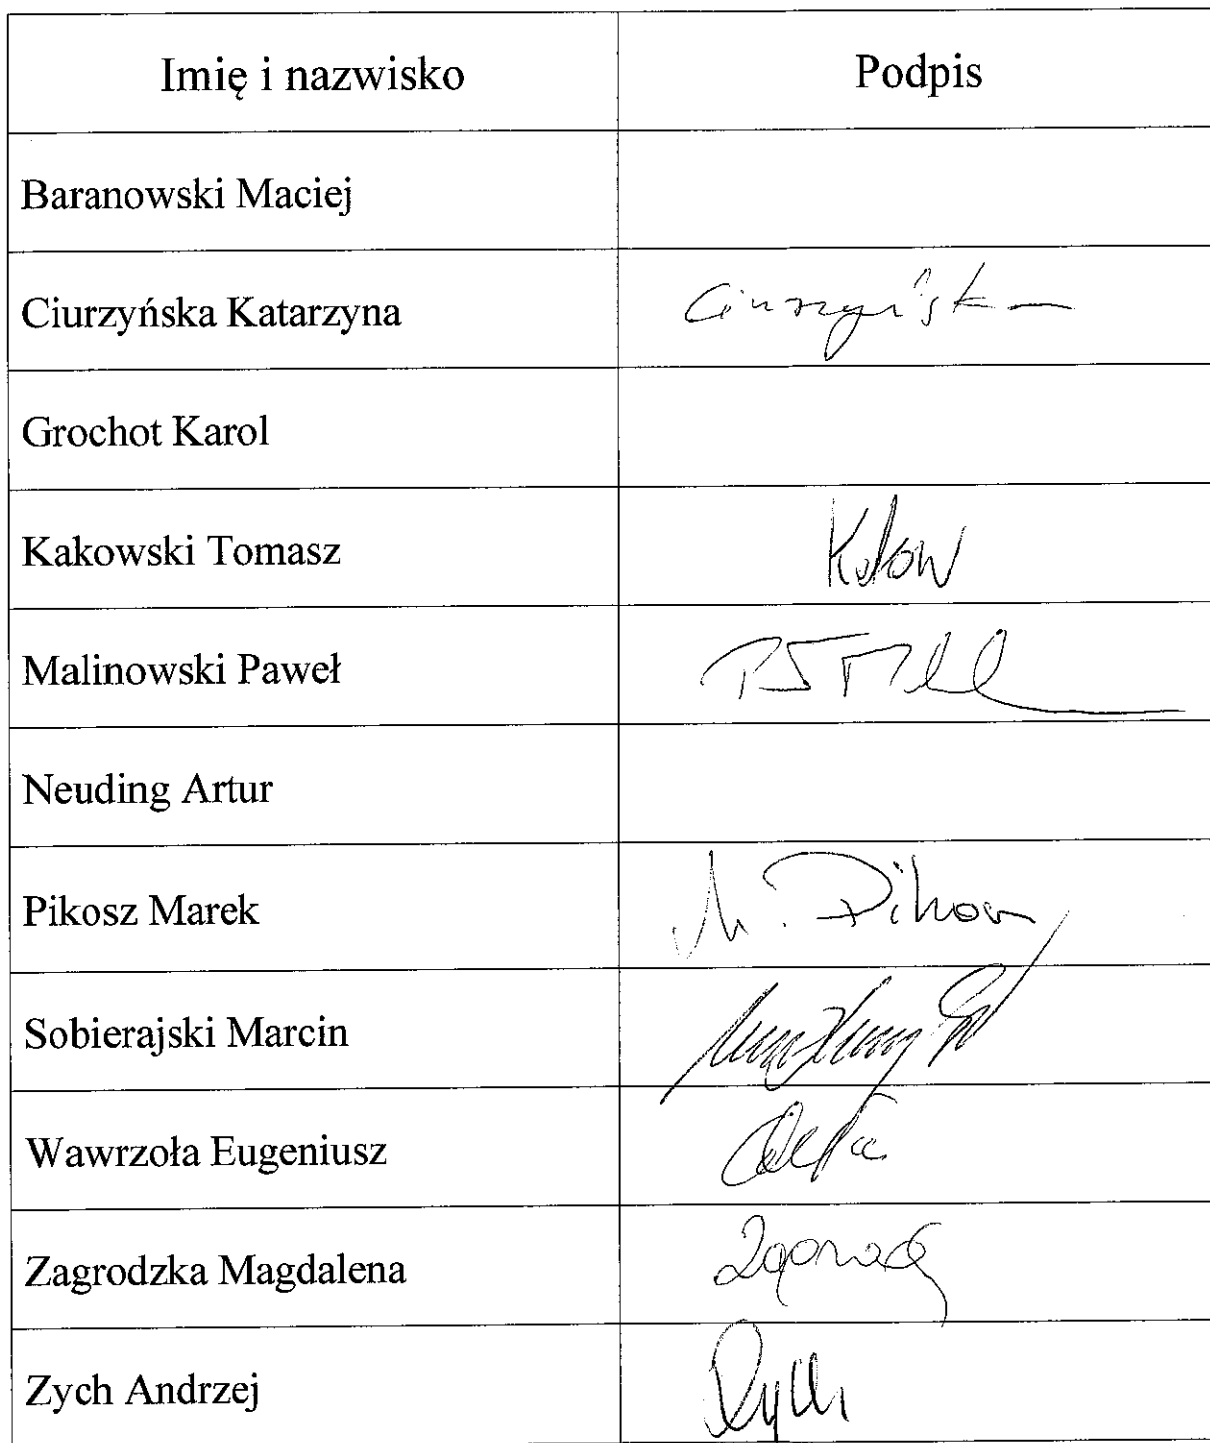 Imię i nazwisko Podpis
Baranowski Maciej
Ciurzyńska Katarzyna Ciurzyńska
Grochot Karol
Kakowski Tomasz Kakow
Malinowski Paweł
Neuding Artur
Pikosz Marek M. Pikosz
Sobierajski Marcin
Wawrzoła Eugeniusz
Zagrodzka Magdalena
Zych Andrzej Zych